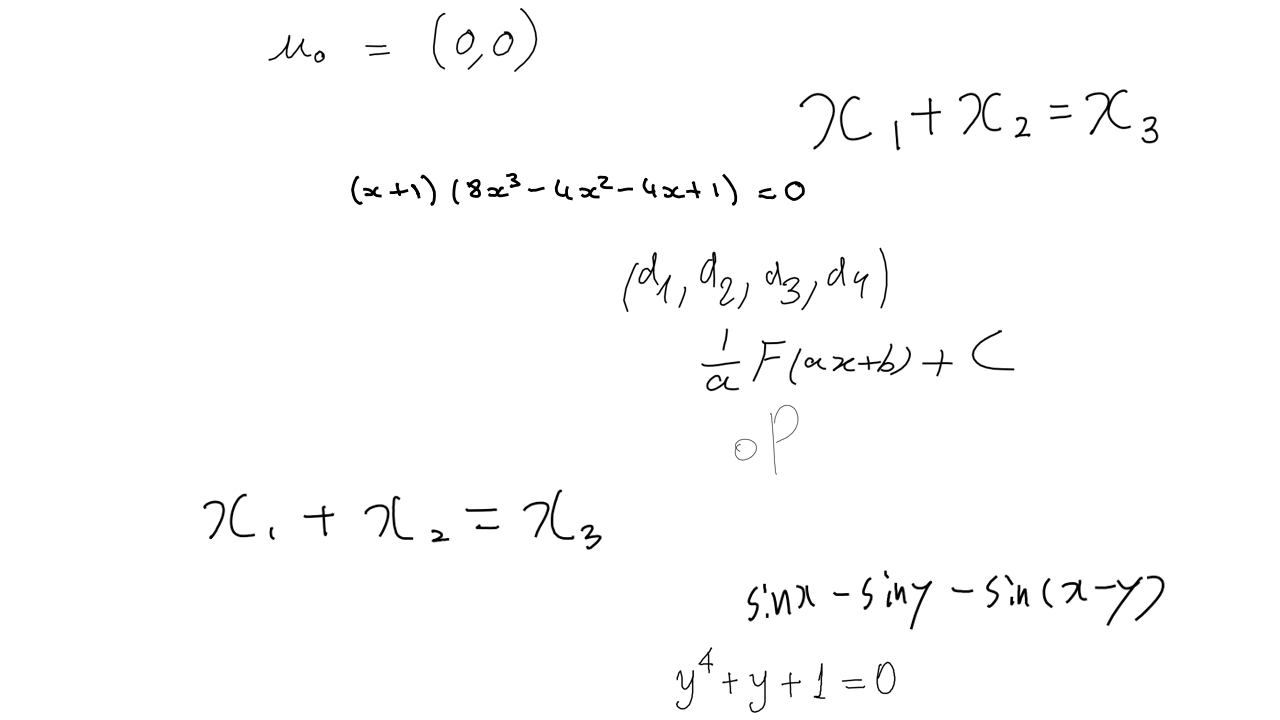 μ₀ = (0,0)
x₁ + x₂ = x₃
(x+1)(8x³-4x²-4x+1) = 0
(d₁, d₂, d₃, d₄)
1/a F(ax+b) + C
oP
x₁ + x₂ = x₃
sinx - siny - sin(x-y)
y⁴ + y + 1 = 0